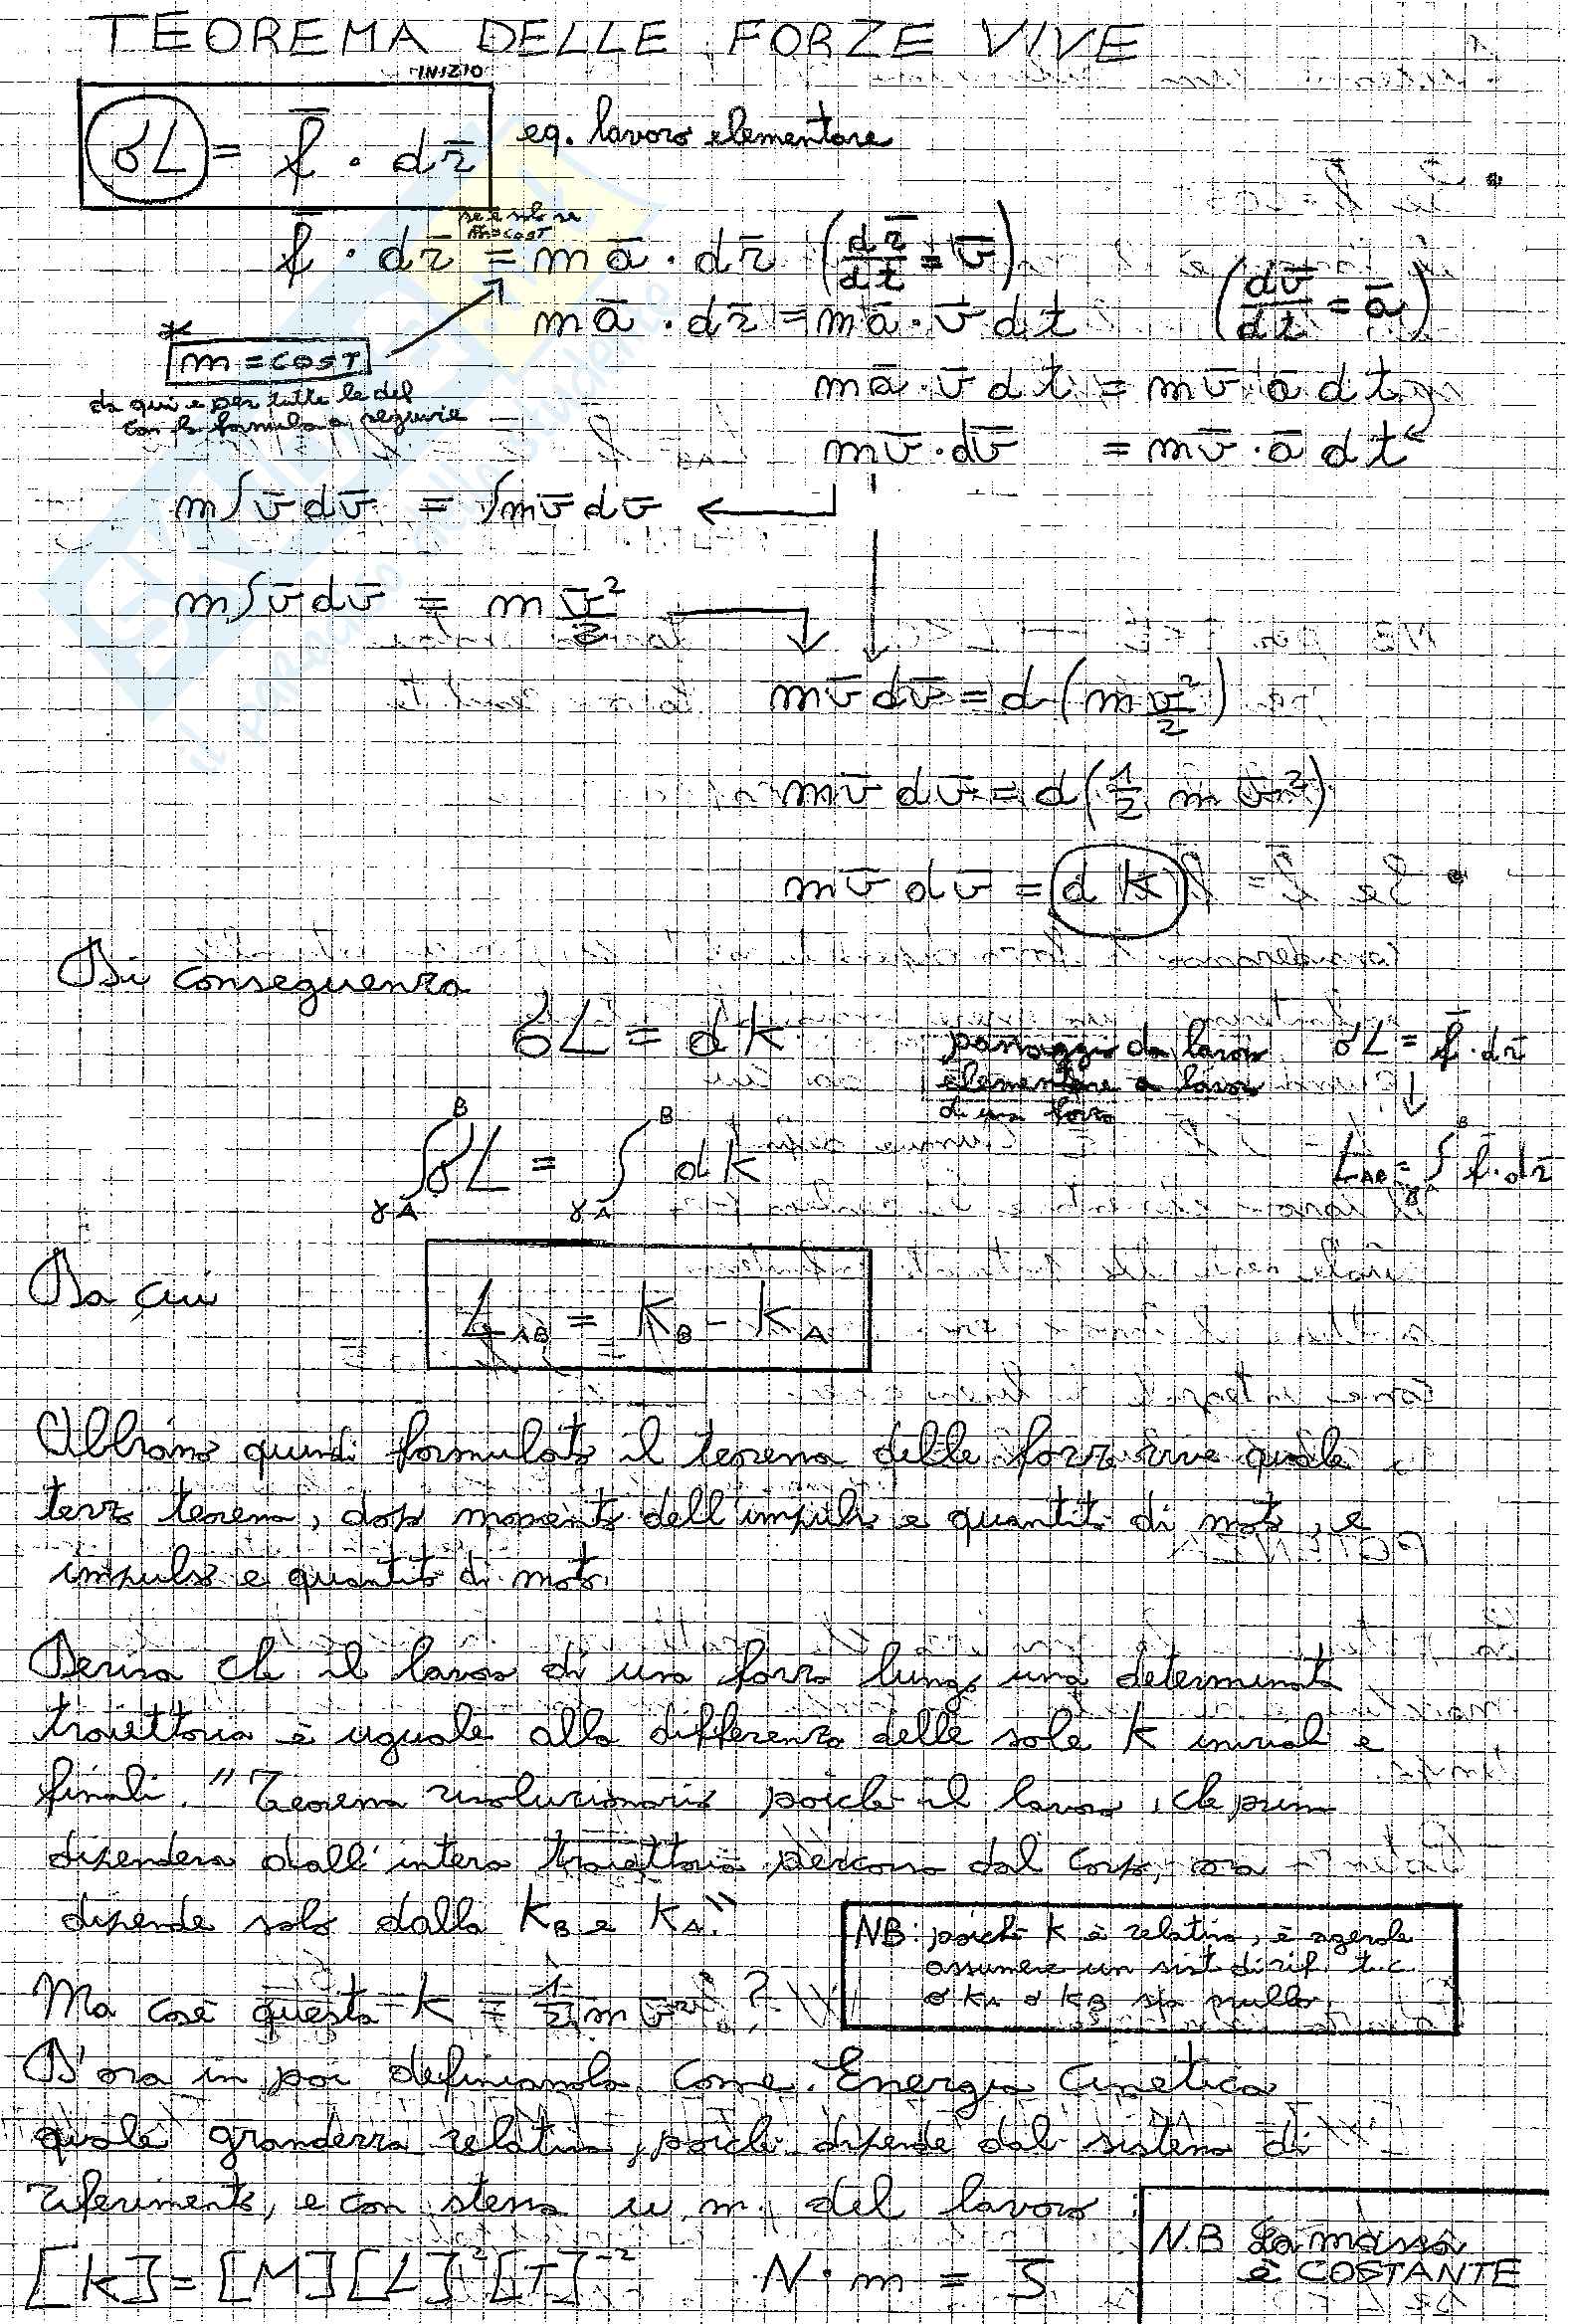 TEOREMA DELLE FORZE VIVE
INIZIO
δL = f̄ · dr̄ eq. lavoro elementare
se e solo se
m=cost
f̄ · dr̄ = m ā · dr̄ (dr̄/dt = v̄)
mā · dr̄ = mā · v̄ dt (dv̄/dt = ā)
* m = COST
da qui e per tutte le def
con la formula a seguire
mā · v̄ dt = mv̄ · ā dt
mv̄ · dv̄ = mv̄ · ā dt
m∫v̄ dv̄ = ∫mv̄ dv̄
m∫v̄ dv̄ = m v̄²/2
mv̄ dv̄ = d(m v̄²/2)
mv̄ dv̄ = d(1/2 m v̄²)
mv̄ dv̄ = dk
Di conseguenza
δL = dk
passaggio da lavoro
elementare a lavoro
di una forza
δL = f̄ · dr̄
∫γA^B δL = ∫γA^B dk
L_AB = ∫γA^B f̄ · dr̄
Da cui
L_AB = k_B - k_A
Abbiamo quindi formulato il teorema delle forze vive quale
terzo teorema, dopo momento dell'impulso e quantità di moto, e
impulso e quantità di moto.
Deriva che il lavoro di una forza lungo una determinata
traiettoria è uguale alla differenza delle sole k iniziali e
finali. "Teorema rivoluzionario poiché il lavoro, che prima
dipendeva dall'intera traiettoria percorsa dal corpo, ora
dipende solo dalla k_B e k_A."
NB: poiché k è relativa, è agevole
assumere un sist di rif. t.c.
o k_A o k_B sia nulla
Ma cos'è questa k = 1/2 m v̄² ?
D'ora in poi definiamola come Energia Cinetica
quale grandezza relativa, poiché dipende dal sistema di
riferimento, e con stessa u.m. del lavoro
[k] = [M][L]²[T]⁻² N·m = J
N.B La massa
è COSTANTE